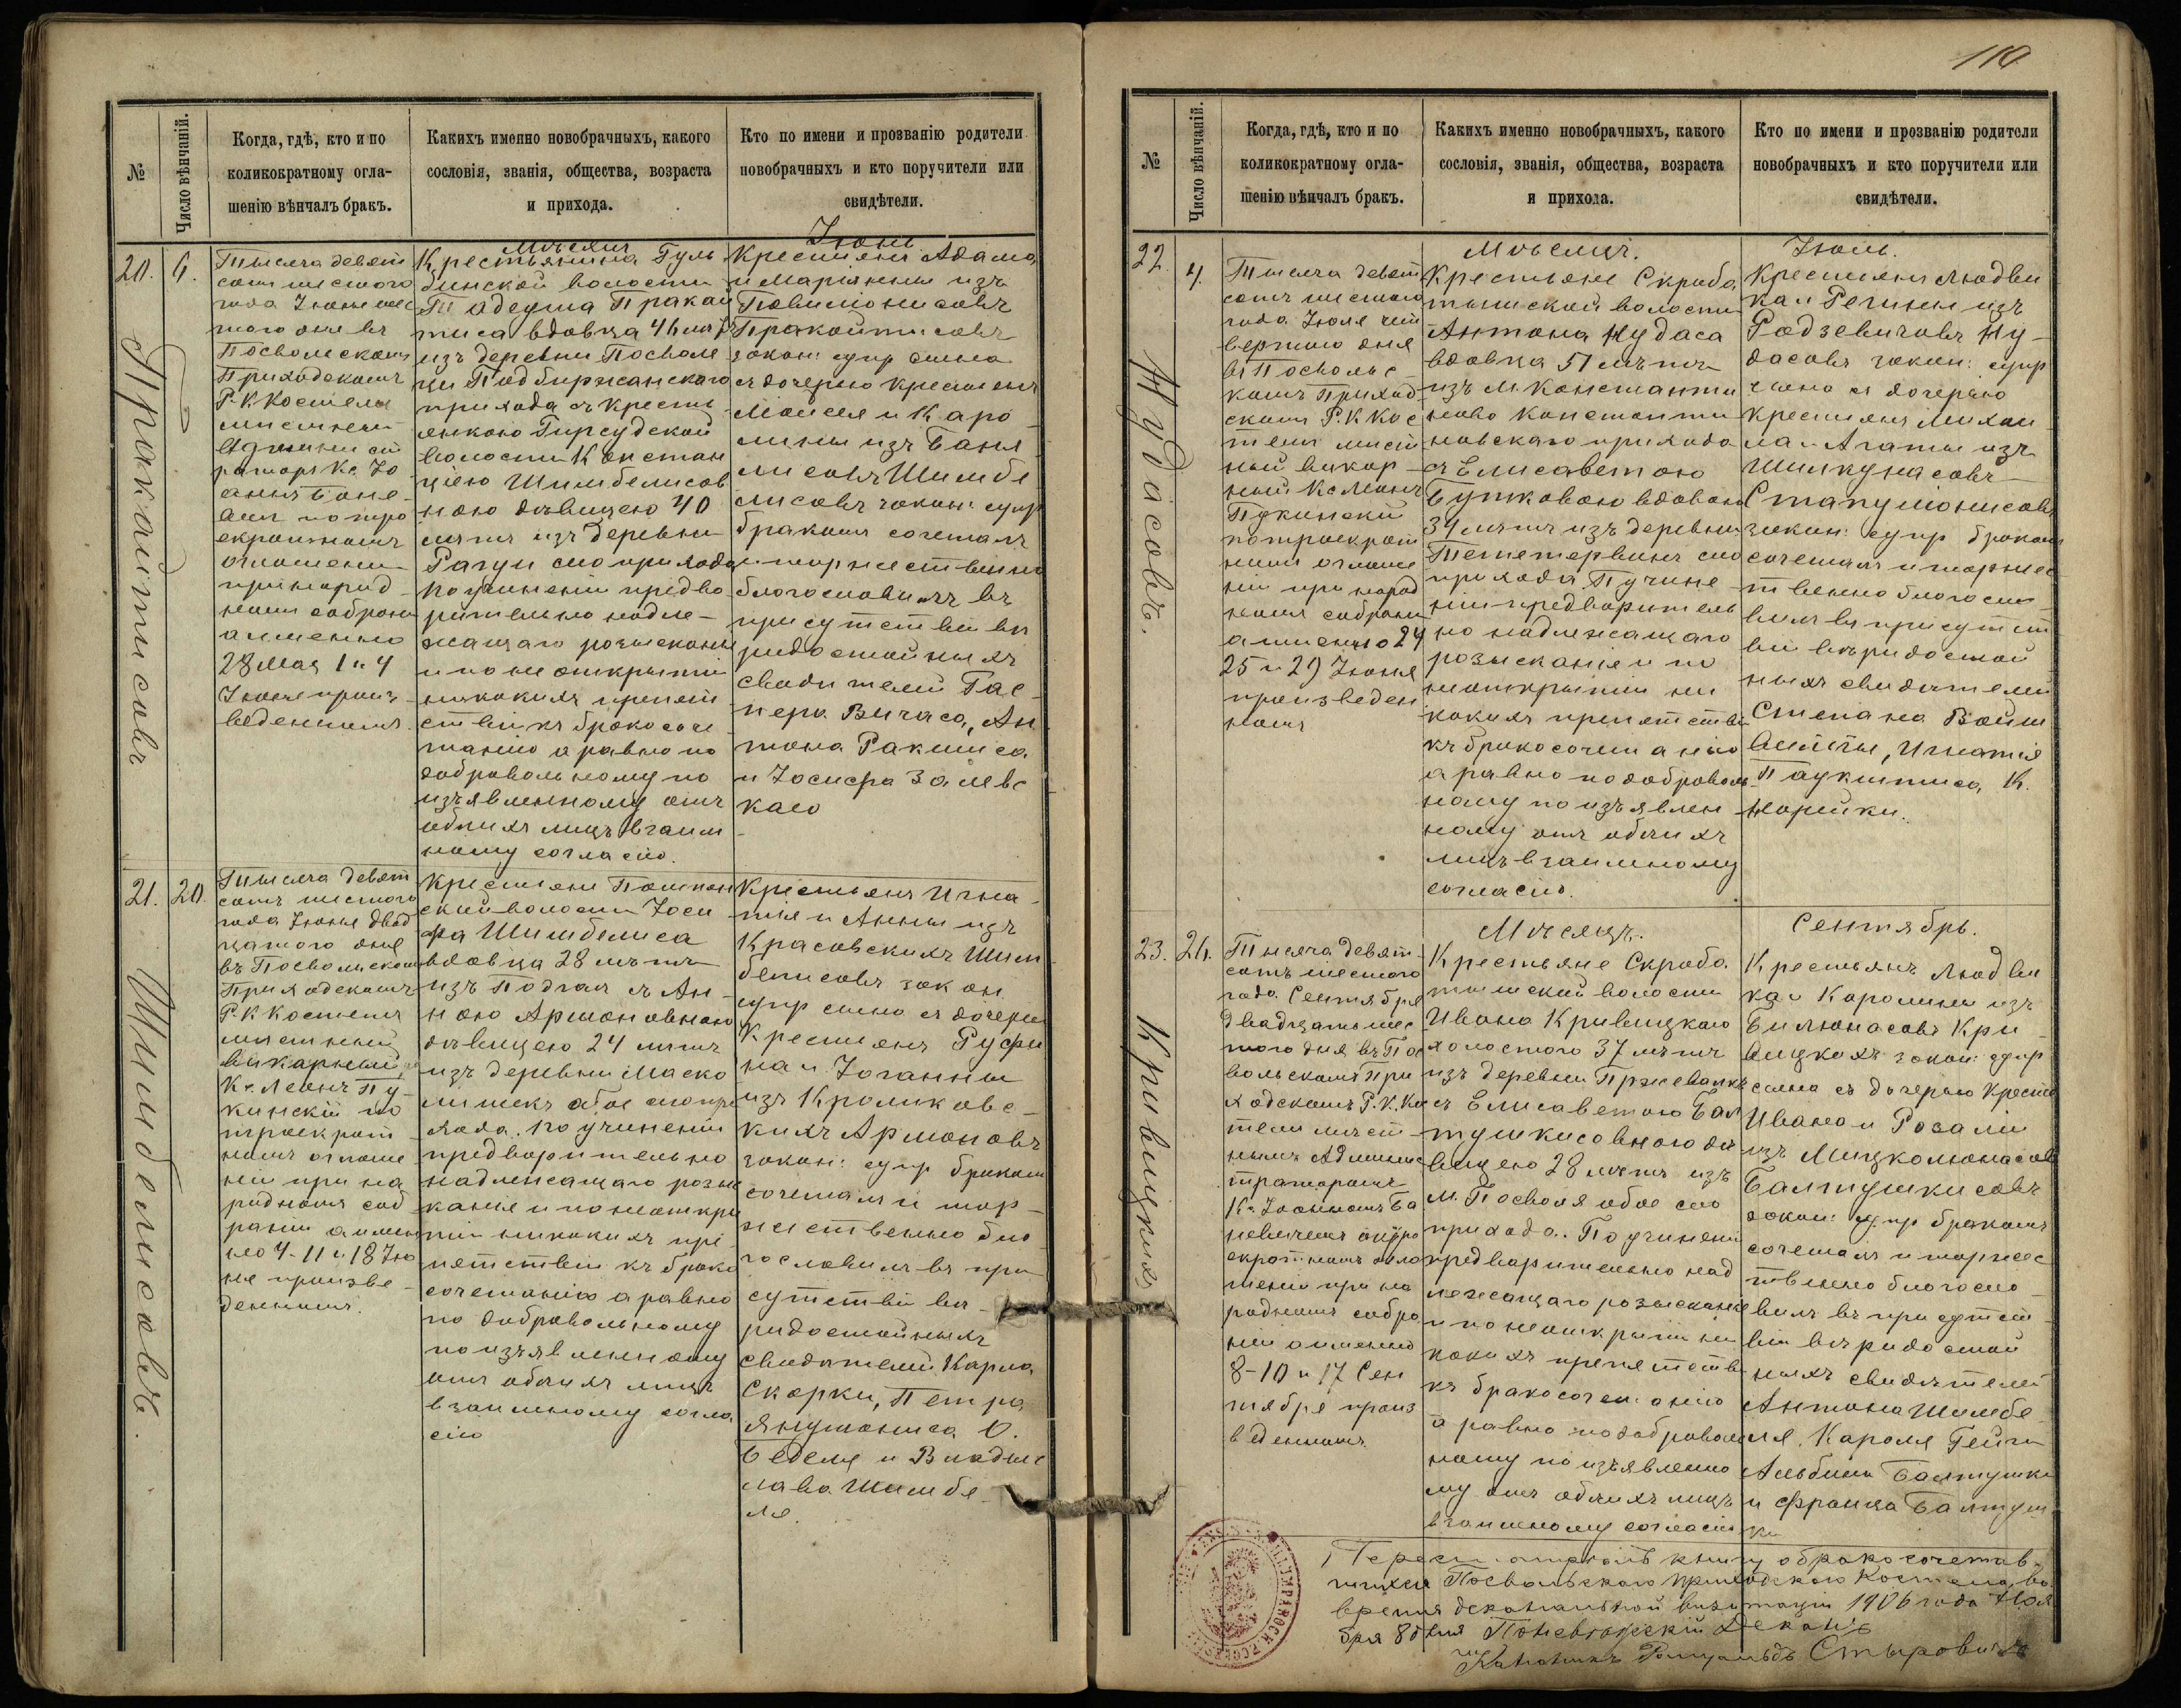 №
Число вѣнчаній.
Когда, гдѣ, кто и по
коликократному огла-
шенію вѣнчалъ бракъ.
Какихъ именно новобрачныхъ, какого
сословія, званія, общества, возраста
и прихода.
Кто по имени и прозванію родители
новобрачныхъ и кто поручители или
свидѣтели.
Мѣсяцъ
Іюнь
20.
6.
Пракайтисовъ
Тысяча девят
сотъ шестого
года Іюня шес
того дня въ
Посвольскомъ
Приходскомъ
Р. К. Костелѣ
мѣстным
Админист
раторъ Кс. Іо
аннъ Боне-
вич по тро
екратномъ
оглашеніи
при народ
номъ собрані
а именно
28 Мая 1 и 4
Іюня произ
веденномъ.
Крестьянина Гуль
бинской волости
Тадеуша Пракай
тиса вдовца 46 лѣтъ
изъ деревни Посволе
ци Подбиржанскаго
прихода съ кресть
янкою Гирсудской
волости Констан
ціею Шимбелисов
ною дѣвицею 40
лѣтъ изъ деревни
Рагуи сего прихода
по учиненіи предва
рительно надле-
жащаго розысканія
и по не открытіи
никакихъ препят
ствій къ бракосоче
танію а равно по
добровольному по
изъявленному отъ
обоихъ лицъ взаим
ному согласію.
Крестьянъ Адама
и Маріянны изъ
Повиліонисовъ
Пракойтисовъ
закон: супр сына
съ дочерью крестьянъ
Моисея и Каро
лины изъ Баня
лисовъ Шимбе
лисовъ закон: супр
бракомъ сочеталъ
и торжественно
благословилъ въ
присутствіи вѣ
ридостойныхъ
свидѣтелей Гас
пера Вичаса, Ан
тона Ракшиса
и Іосифа Залевс
каго
21.
20.
Шимбелисовъ.
Тысяча девят
сотъ шестого
года Іюня двад
цатого дня
въ Посвольскомъ
Приходскомъ
Р. К. Костелѣ
мѣстный
викарный
Кс. Леонъ Пу-
кинскій по
троекрат
номъ оглаше
ніи при на
родномъ соб
раніи а имен
но 4-11 и 18 Ію
ня произве
денномъ.
Крестьяне Помпян
ский волости Іоси
фа Шимбелиса
вдовца 28 лѣтъ
изъ Подгая съ Ан-
ною Армоновною
дѣвицею 24 лѣтъ
изъ деревни Маско
лишекъ обое сего при
хода. По учиненіи
предварительно
надлежащаго розыс
канія и по неоткры
тіи никакихъ пре
пятствій къ брако
сочетанію а равно
по добровольному
по изъявленному
отъ обоихъ лицъ
взаимному согла
сію
Крестьянъ Игна-
тія и Анны изъ
Красовскихъ Шим
белисовъ закон
супр сына съ дочерью
Крестьянъ Руфи
на и Іоганны
изъ Кроликовс-
кихъ Армоновъ
закон: супр бракомъ
сочеталъ и тор-
жественно бла
гословилъ въ при
сутствіи вѣ-
ридостойныхъ
свидѣтелей Карла
Скорки, Петра
Янушониса О.
Беделя и Владис
лава Шимбе-
ля.
110
№
Число вѣнчаній.
Когда, гдѣ, кто и по
коликократному огла-
шенію вѣнчалъ бракъ.
Какихъ именно новобрачныхъ, какого
сословія, званія, общества, возраста
и прихода.
Кто по имени и прозванію родители
новобрачныхъ и кто поручители или
свидѣтели.
Мѣсяцъ.
Іюль.
22.
4.
Нудасовъ.
Тысяча девят
сотъ шестого
года Іюля чет
вертого дня
въ Посвольс-
комъ Приход-
скомъ Р. К. Кос
телѣ мѣст
ный викар-
ный Кс. Леонъ
Пукинскій
по троекрат
номъ оглаше
ніи при народ
номъ собрані
а именно 24
25 и 29 Іюня
произведен
номъ
Крестьяне Скроба
тышской волости
Антона Нудаса
вдовца 51 лѣтъ
изъ м. Константи
ново Константи
новскаго прихода
съ Елисаветою
Буткевою вдовою
34 лѣтъ изъ деревни
Тетервинъ сего
прихода По учине-
ніи предваритель
но надлежащаго
розысканія и по
неоткрытіи ни
какихъ препятстві
къ бракосочетанію
а равно по доброволь
ному по изъявлен
ному отъ обоихъ
лицъ взаимному
согласію.
Крестьянъ Людви
ка и Регины изъ
Родзевичовъ Ну-
дасовъ закон: супр
сына съ дочерью
крестьянъ Михаи
ла и Агаты изъ
Шилкунасовъ
Стапулионисовъ
закон: супр бракомъ
сочеталъ и торжес
твенно благосло
вилъ въ присутст
віи вѣридостой
ныхъ свидѣтелей
Степана Войш
вилы, Игнатія
Паукштиса, К.
Норейки.
Мѣсяцъ.
Сентябрь.
23.
26.
Кривицкихъ
Тысяча девят-
сотъ шестого
года Сентября
двадцать шес
того дня въ Пос
вольскомъ При
ходскомъ Р. К. Кос
телѣ мѣст-
нымъ Админис
траторомъ
Кс. Іоанномъ Бо
невичемъ по тро
екратномъ огла
шеніи при на
родномъ собра
ніи а именно
8-10 и 17 Сен
тября произ
веденномъ.
Крестьяне Скроба
тышской волости
Ивана Кривицкаго
холостого 37 лѣтъ
изъ деревни Пржевалки
съ Елисаветою Бал
тушкисовною дѣ
вицею 28 лѣтъ изъ
м. Посволя обое сего
прихода. По учинені
предварительно над
лежащаго розысканія
и по неоткрытіи ни
какихъ препятстві
къ бракосочетанію
а равно по добровол
ному по изъявленно
му отъ обоихъ лицъ
взаимному согласію
Крестьянъ Людви
ка и Каролины изъ
Билюнасовъ Кри-
вицкихъ закон: супр
сына съ дочерью Крестьянъ
Ивана и Розаліи
изъ Мицкалюнасовъ
Балтушкисовъ
закон: супр бракомъ
сочеталъ и торжес
твенно благосло-
вилъ въ присутст
віи вѣридостой
ныхъ свидѣтелей
Антона Шимбе
ля, Кароля Гейги
Альбина Балтушки
и Франца Балтуш
ки
книгу о бракосочетав-
шихся Посвольскаго приходскаго Костела, во
время деканальной визитаціи 1906 года Ноя
бря 8 дня Поневѣжскій Деканъ
Каноникъ Ромуальдъ Стыровичъ